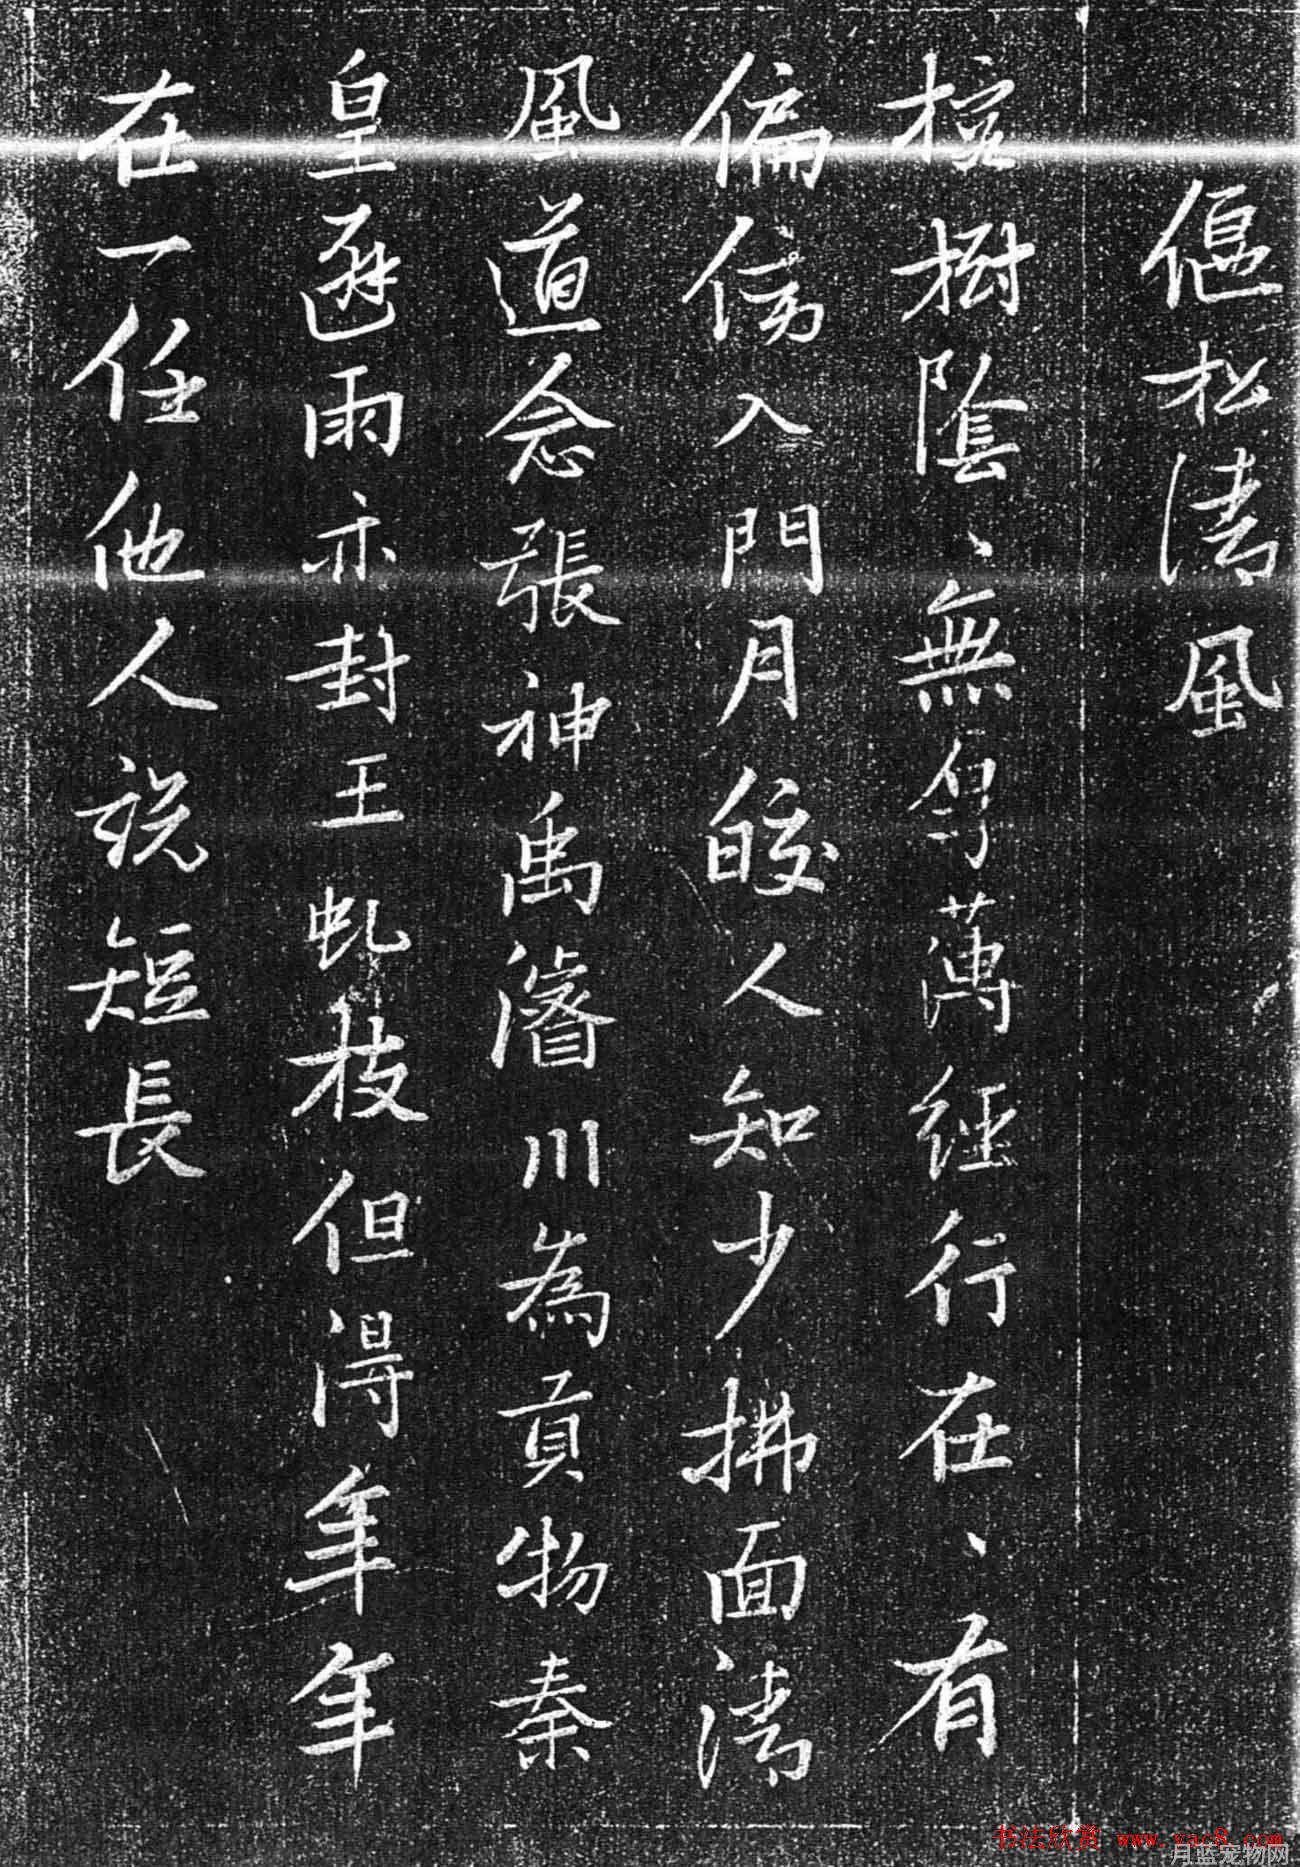 偃松清風
檀樹陰、無守萬經行在、有
偏傍入門月皎人知少拂面清
風道念張神禹濬川為貢物秦
皇避雨亦封王虬枝但得年年
在一任他人說短長
书法欣赏 www.yac8.com
月蓝宠物网